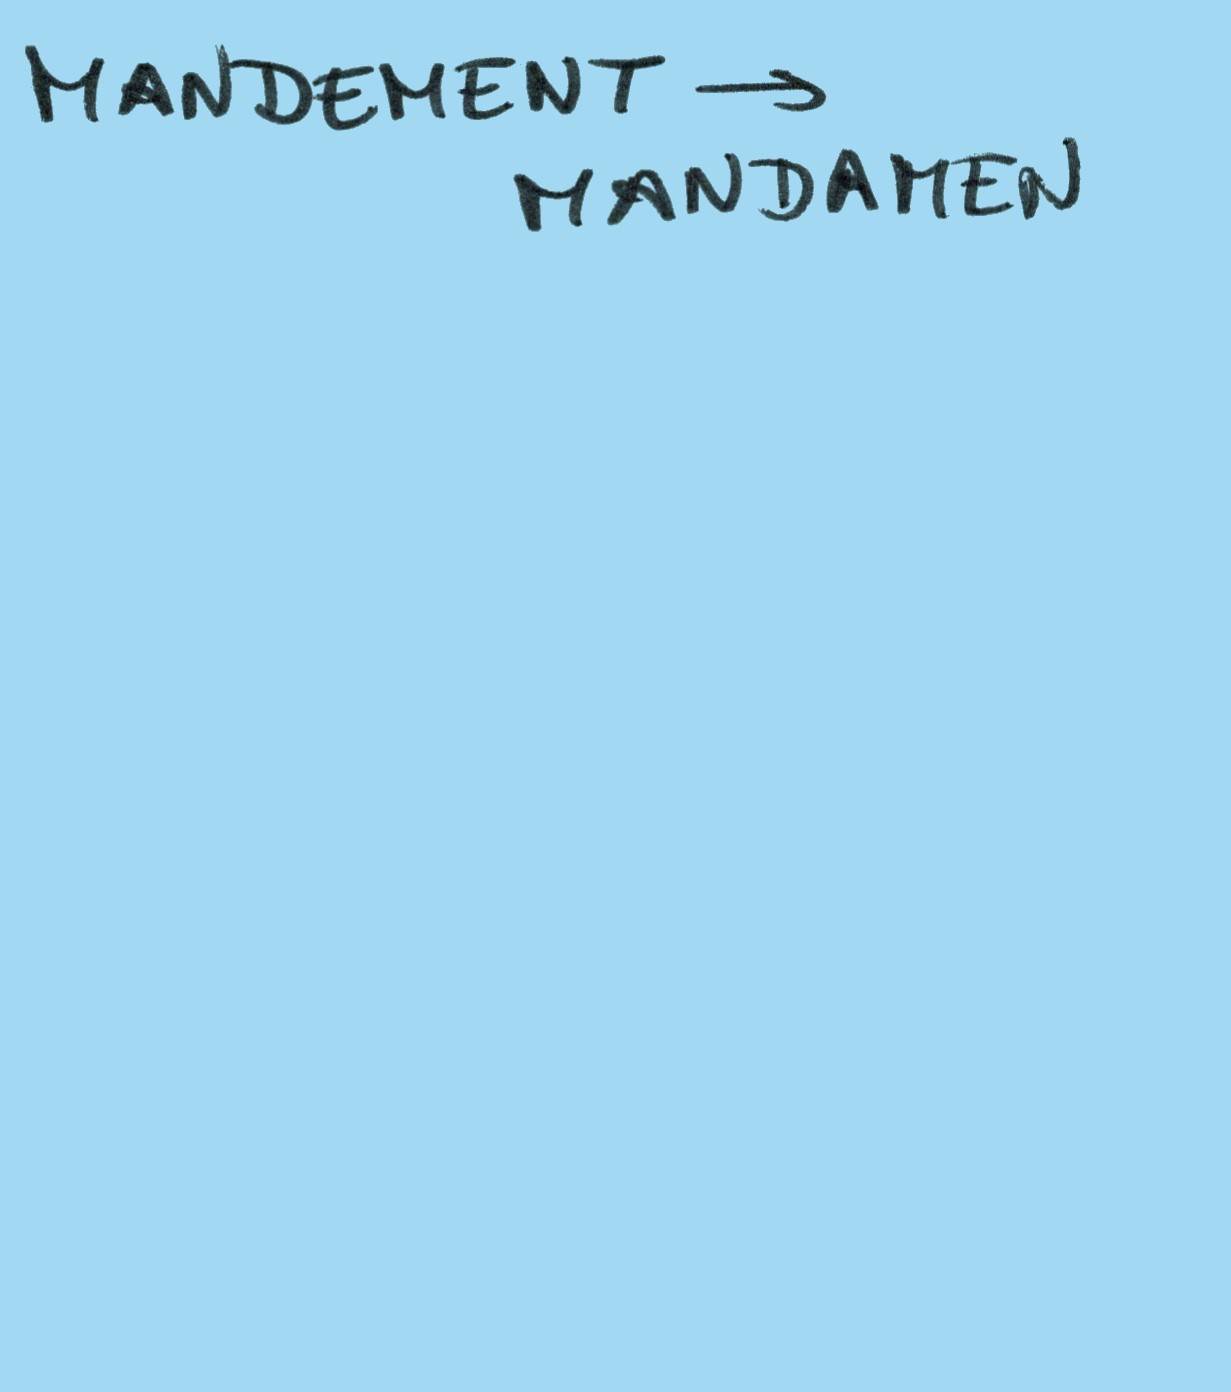 MANDEMENT →
MANDAMEN